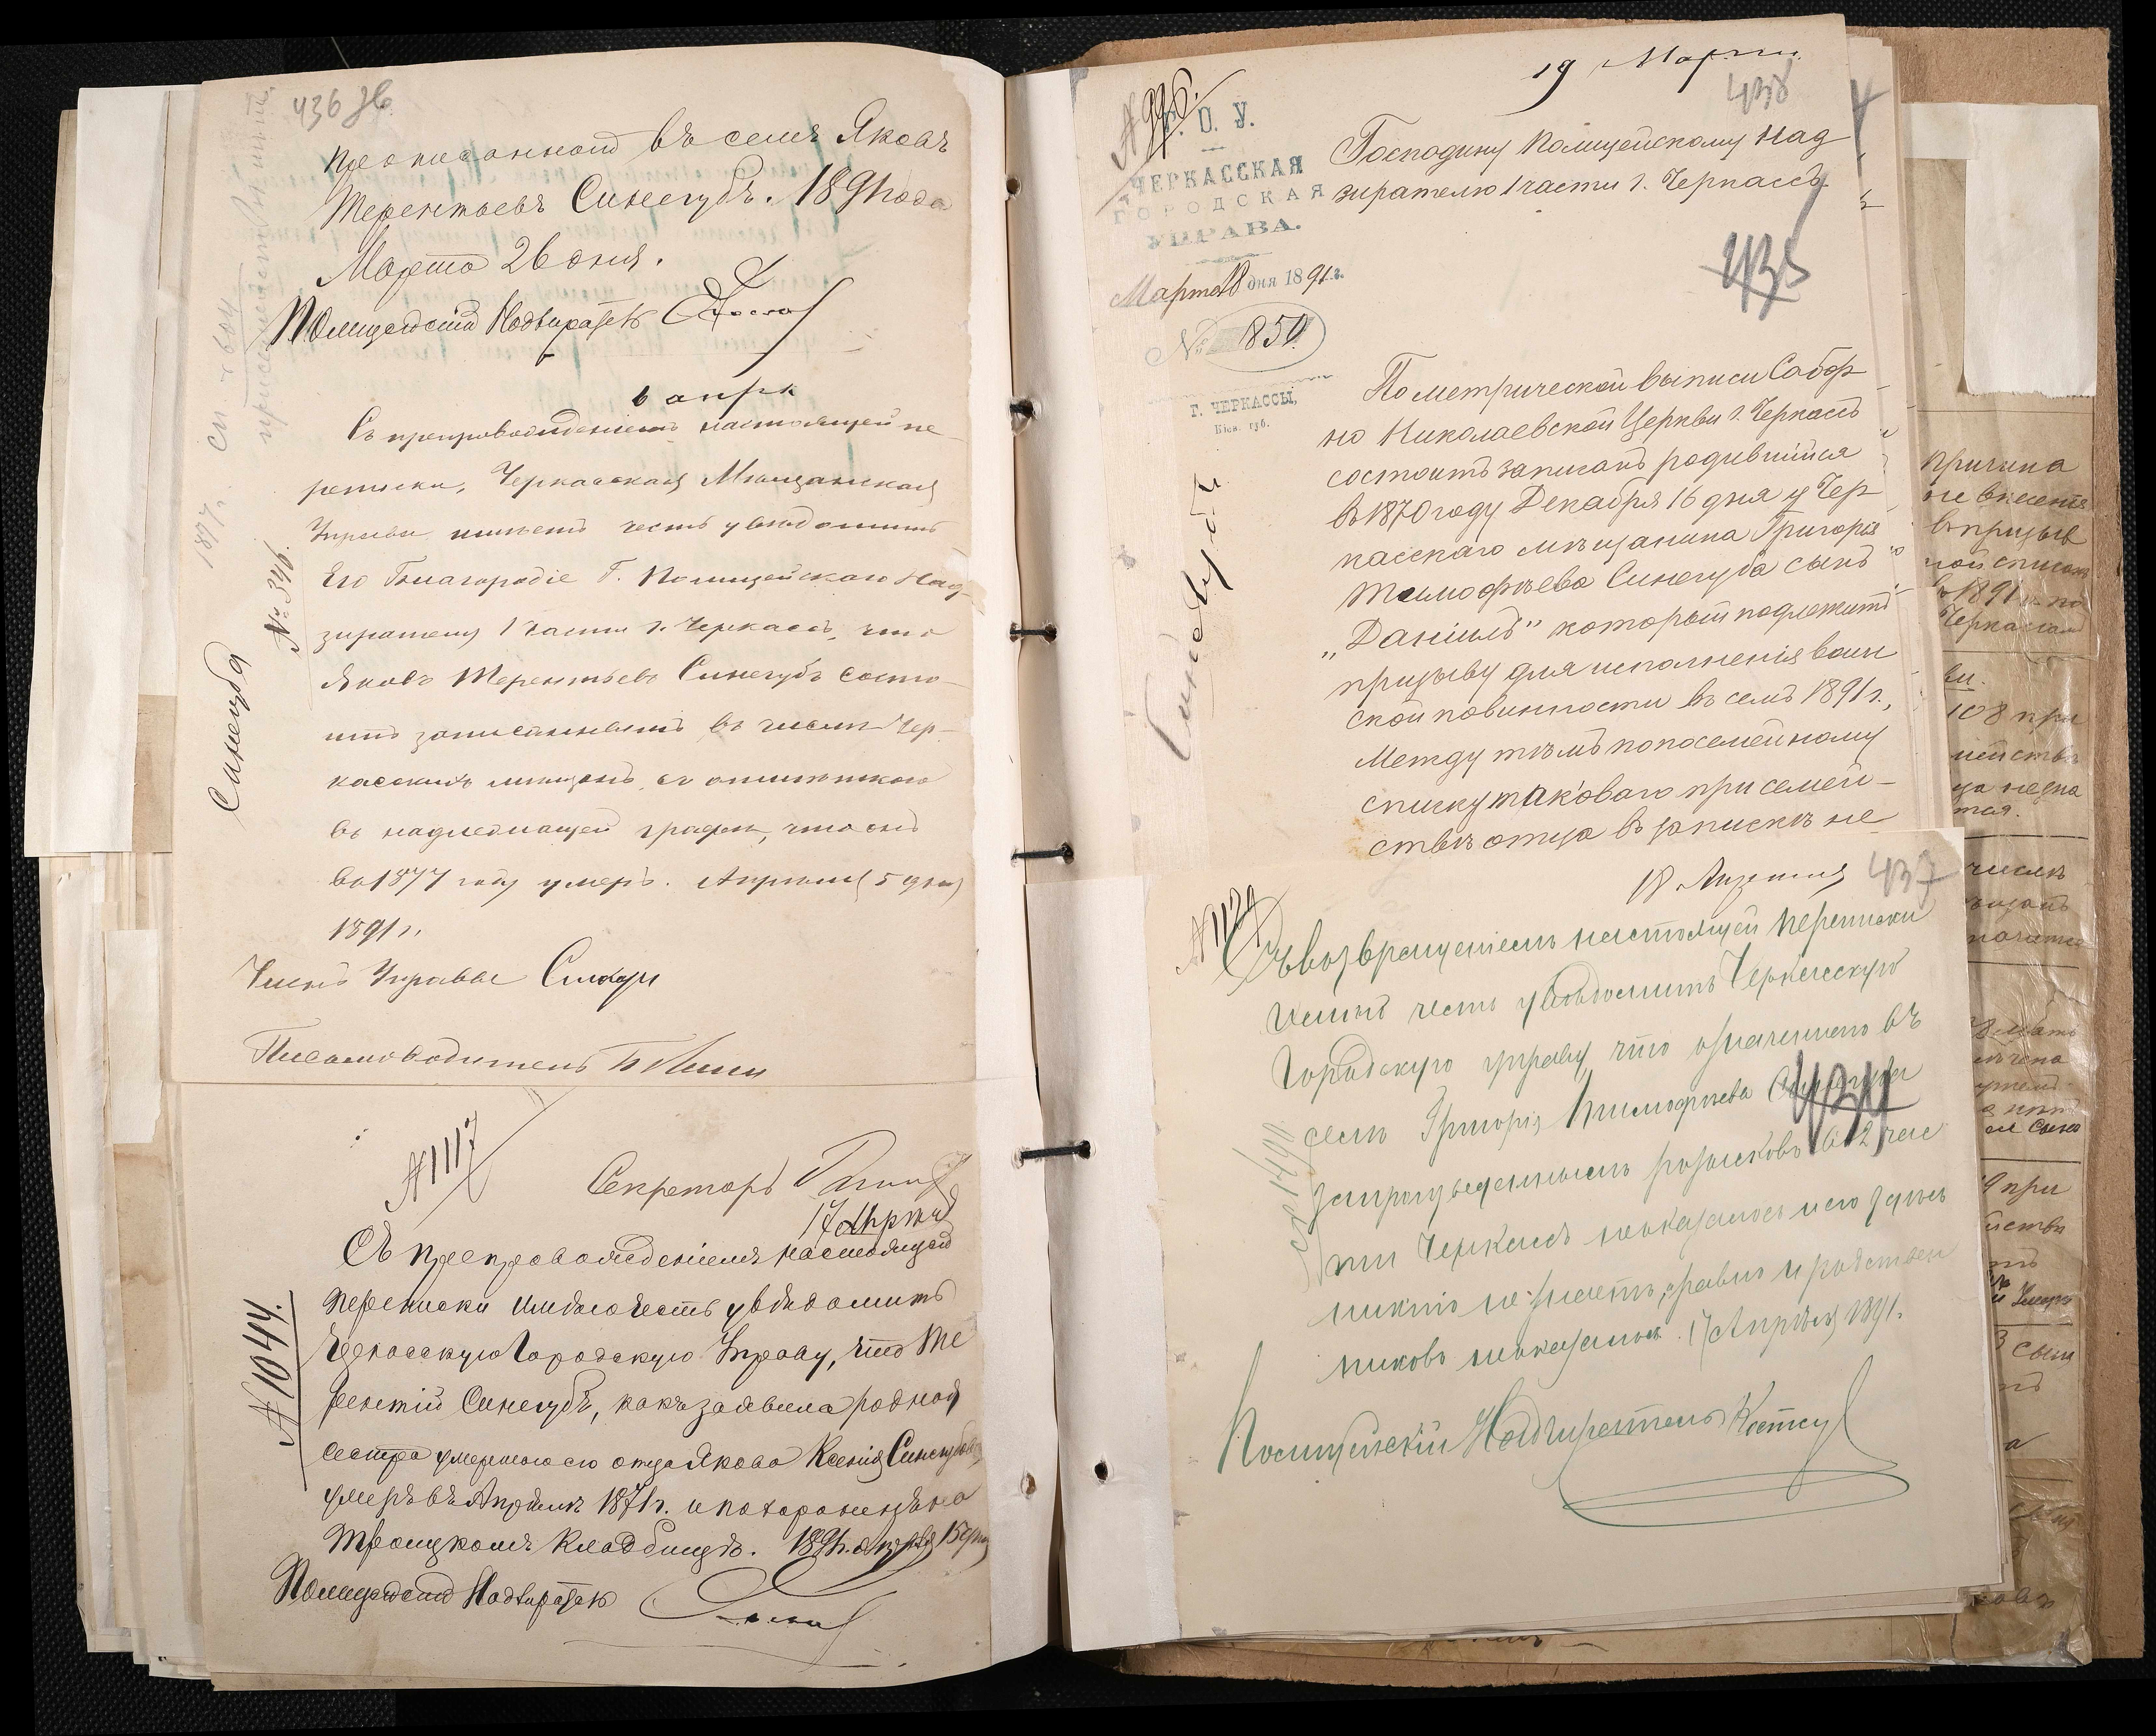 436 об.
прописанной въ семъ Яковъ
Терентьевъ Синегубъ. 1891 года
Марта 26 дня.
Полицейскій Надзиратель
6 апрѣ
Съ препровожденіемъ настоящей пе-
реписки, Черкасская Мѣщанская
Управа имѣетъ честь увѣдомить
Его Благородіе Г. Полицейскаго Над-
зирателя 1 части г. Черкасъ, что
Яковъ Терентьевъ Синегубъ состо-
итъ записаннымъ въ числѣ Чер-
касскихъ мѣщанъ, съ отмѣткою
въ надлежащей графѣ, что онъ
въ 1877 году умеръ. Апрѣля 5 дня
1891 г.
Членъ Управы
Письмоводитель
№ 346.
Синегуба
1897 г. сп. № 604
№ 1117
Секретарь
17 Апрѣля
Съ препровожденіемъ настоящей
переписки имѣю честь увѣдомить
Черкасскую Городскую Управу, что Те
рентій Синегубъ, какъ заявила родная
сестра умершаго его отца Якова Ксенія Синегубова,
умеръ въ Апрѣлѣ 1871 г. и похороненъ на
Троицкомъ Кладбищѣ. 1891 г. апрѣля 15 дня
Полицейскій Надзиратель
№ 1044.
19 Марта
438
№ 996.
Г. О. У.
ЧЕРКАССКАЯ
ГОРОДСКАЯ
УПРАВА.
Марта 18 дня 1891 г.
№ 850
Г. ЧЕРКАССЫ,
Кіев. губ.
Синегубъ
Господину Полицейскому Над
зирателю 1 части г. Черкассъ
435
По метрической выписи Собор
но Николаевской Церкви г. Черкассъ
состоитъ записанъ родившійся
въ 1870 году Декабря 16 дня у Чер
касскаго мѣщанина Григорія
Тимофѣева Синегуба сынъ
„Даніилъ" который подлежитъ
призыву для исполненія воин
ской повинности въ семъ 1891 г.,
Между тѣмъ по посемейному
списку таковаго при семей-
ствѣ отца въ запискѣ не
18 Апрѣля 437
№ 1129
Съ возвращеніемъ настоящей переписки
имѣю честь увѣдомить Черкасскую
Городскую управу, что означеннаго въ
семъ Григорія Тимофѣева Синегуба
434
за произведеннымъ розыскомъ во 2 час
ти Черкассъ не оказалось и его здѣсь
никто не знаетъ, равно и родствен
никовъ не оказалось. 17 Апрѣля 1891.
Полицейскій Надзиратель
№ 1490
Причина
не внесенія
въ призыв
ной списокъ
въ 1891 г. по
Черкассам
108 при